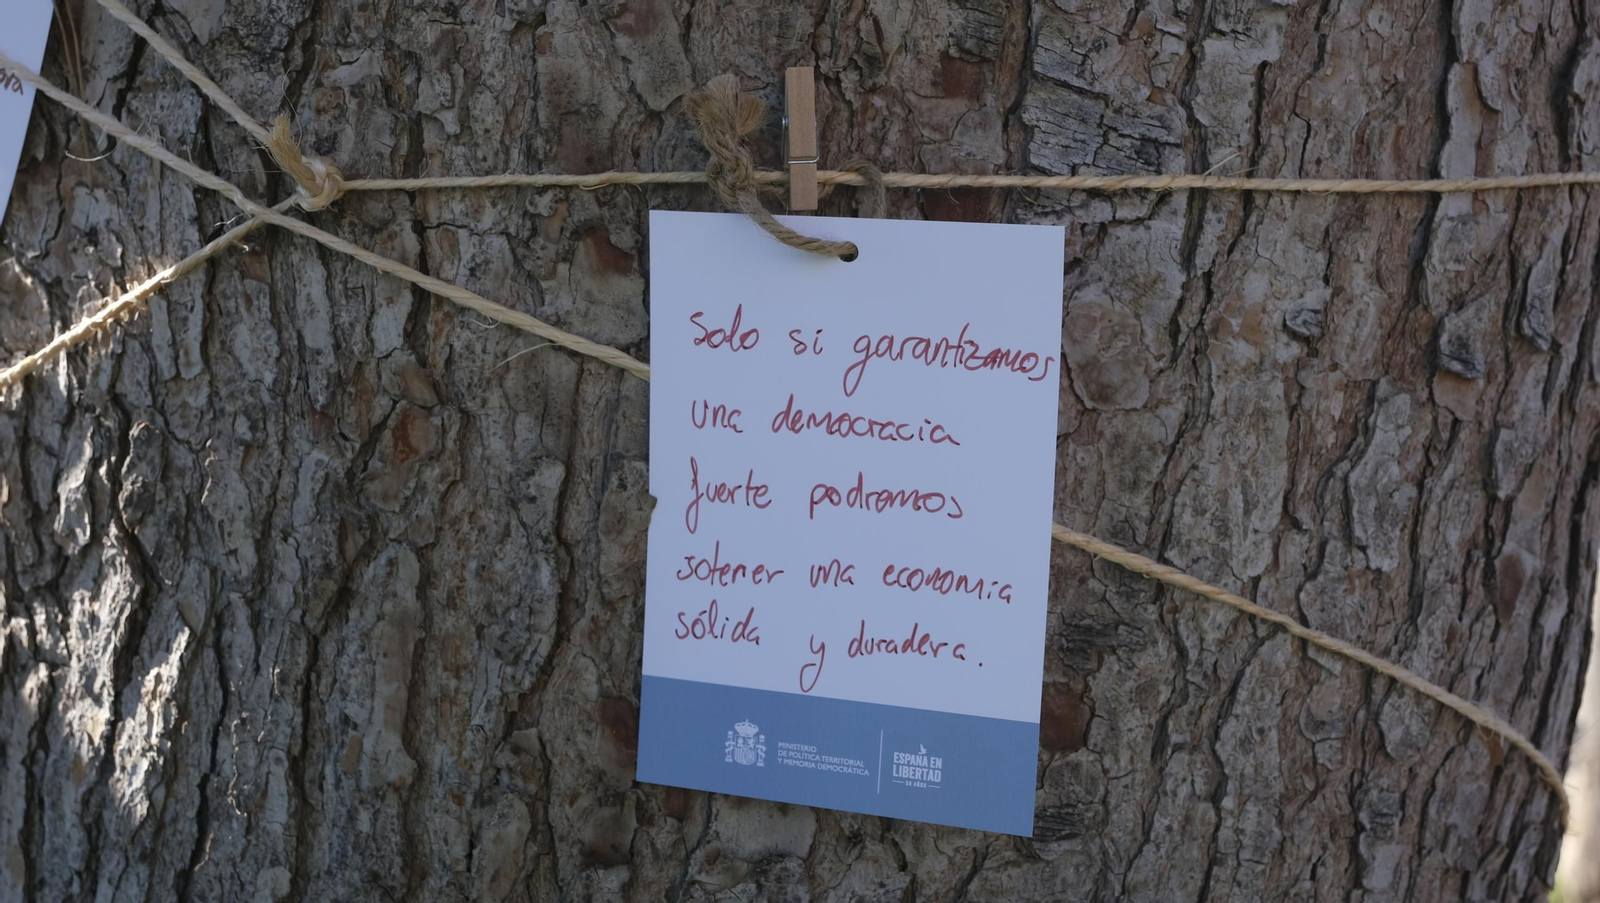 ora
Solo si garantizamos
una democracia
fuerte podremos
sotener una economia
sólida y duradera.
MINISTERIO
DE POLÍTICA TERRITORIAL
Y MEMORIA DEMOCRÁTICA
ESPAÑA EN
LIBERTAD
50 AÑOS